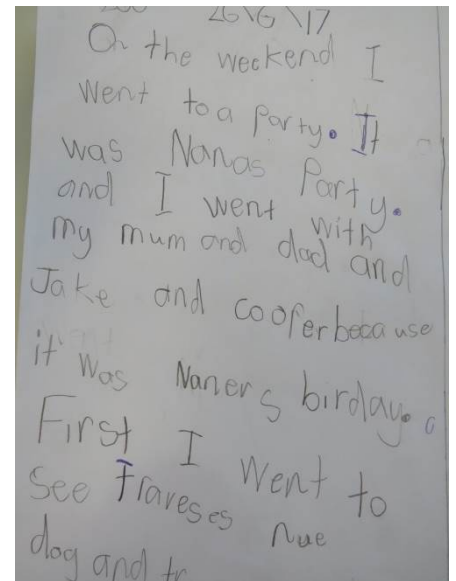 26\6\17
On the weekend I
went to a party. It
was Nanas Party.
and I went with
my mum and dad and
Jake and cooper because
it was Naners birday.
First I went to
see Traveses nue
dog and